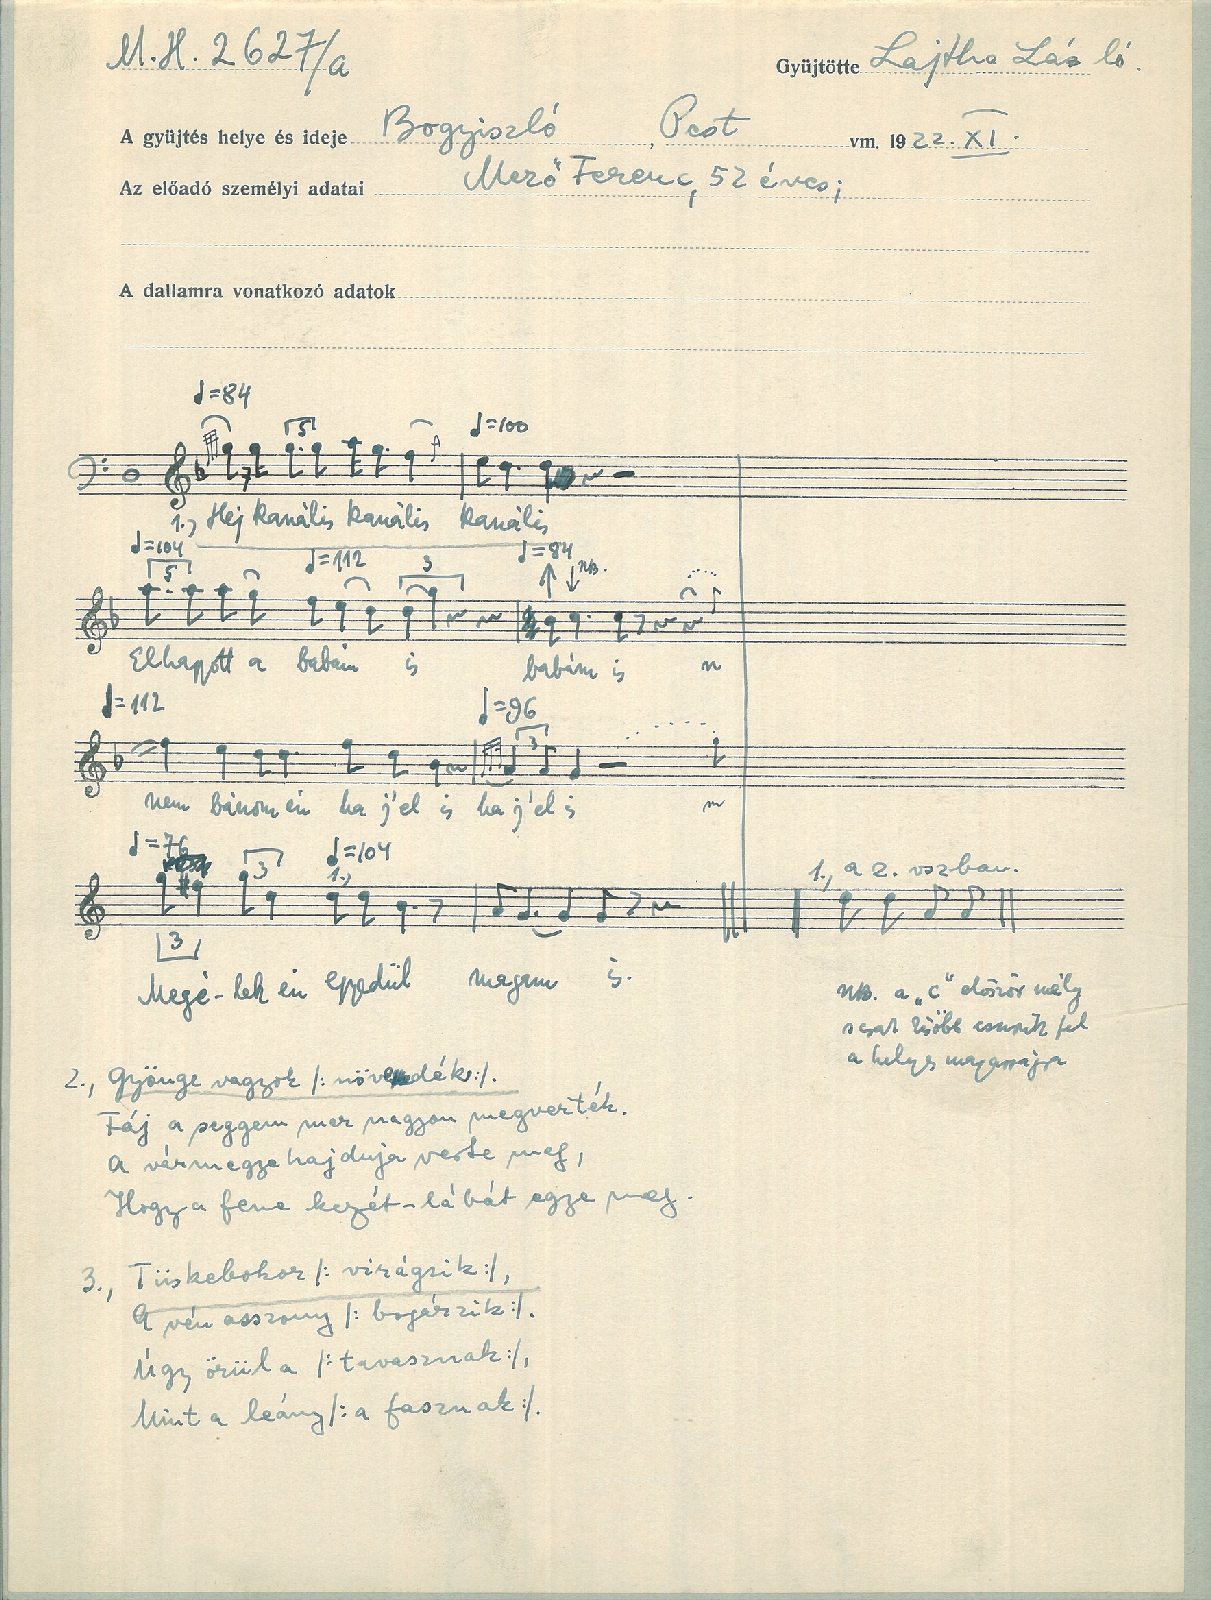 M.H. 2627/a
Gyüjtötte Lajtha László.
A gyüjtés helye és ideje Bogyiszló, Pest vm. 1922. XI.
Az előadó személyi adatai Mező Ferenc, 52 éves;
A dallamra vonatkozó adatok
♩=84
5
♩=100
1., Hej kanális kanális kanális
♩=104 ♩=112 ♩=84
5 3 NB.
Elhagyott a babám is babám is n
♩=112 ♩=96
3
nem bánom én ha j'el is ha j'el is
♩=76 ♩=104
3 1.,
1., a 2. vszban.
3
Megé-lek én egyedül magam is.
NB. a „c" először mély
csak később csúszik fel
a helyes magasságra
2., Gyönge vagyok /: növendék :/.
Fáj a seggem mer nagyon megverték.
A vármegye hajduja verte meg,
Hogy a fene kezét-lábát egye meg.
3., Tüskebokor /: virágzik :/,
A vén asszony /: bogárzik :/.
Úgy örül a /: tavasznak :/,
Mint a leány /: a fasznak :/.